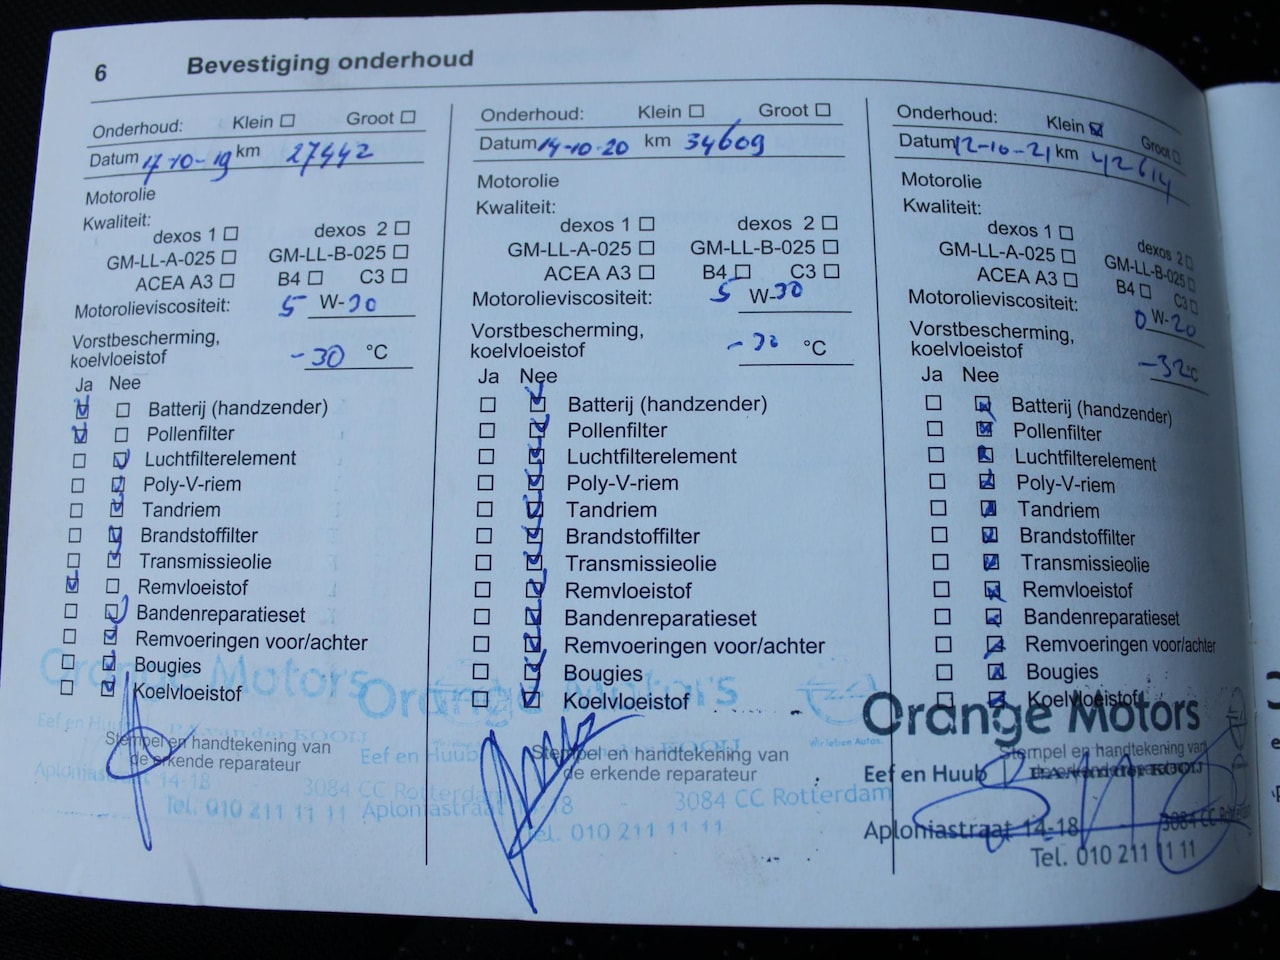 6 Bevestiging onderhoud
Onderhoud: Klein ☐ Groot ☐
Datum 17-10-19 km 27442
Motorolie
Kwaliteit:
dexos 1 ☐ dexos 2 ☐
GM-LL-A-025 ☐ GM-LL-B-025 ☐
ACEA A3 ☐ B4 ☐ C3 ☐
Motorolieviscositeit: 5 W-30
Vorstbescherming,
koelvloeistof -30 °C
Ja Nee
Batterij (handzender)
Pollenfilter
Luchtfilterelement
Poly-V-riem
Tandriem
Brandstoffilter
Transmissieolie
Remvloeistof
Bandenreparatieset
Remvoeringen voor/achter
Bougies
Koelvloeistof
Orange Motors
Eef en Huub
Stempel en handtekening van
de erkende reparateur
Aploniastraat 14-18 3084 CC Rotterdam
Tel. 010 211 11 11
Onderhoud: Klein ☐ Groot ☐
Datum 14-10-20 km 34609
Motorolie
Kwaliteit:
dexos 1 ☐ dexos 2 ☐
GM-LL-A-025 ☐ GM-LL-B-025 ☐
ACEA A3 ☐ B4 ☐ C3 ☐
Motorolieviscositeit: 5 W-30
Vorstbescherming,
koelvloeistof -30 °C
Ja Nee
Batterij (handzender)
Pollenfilter
Luchtfilterelement
Poly-V-riem
Tandriem
Brandstoffilter
Transmissieolie
Remvloeistof
Bandenreparatieset
Remvoeringen voor/achter
Bougies
Koelvloeistof
Orange Motors
Eef en Huub
Stempel en handtekening van
de erkende reparateur
Aploniastraat 14-18 3084 CC Rotterdam
Tel. 010 211 11 11
Onderhoud: Klein ☑ Groot ☐
Datum 12-10-21 km 42614
Motorolie
Kwaliteit:
dexos 1 ☐ dexos 2 ☐
GM-LL-A-025 ☐ GM-LL-B-025 ☐
ACEA A3 ☐ B4 ☐ C3 ☐
Motorolieviscositeit: 0 W-20
Vorstbescherming,
koelvloeistof -32 °C
Ja Nee
Batterij (handzender)
Pollenfilter
Luchtfilterelement
Poly-V-riem
Tandriem
Brandstoffilter
Transmissieolie
Remvloeistof
Bandenreparatieset
Remvoeringen voor/achter
Bougies
Koelvloeistof
Orange Motors
Stempel en handtekening van
Eef en Huub van der KOOIJ
Aploniastraat 14-18 3084 CC
Tel. 010 211 11 11